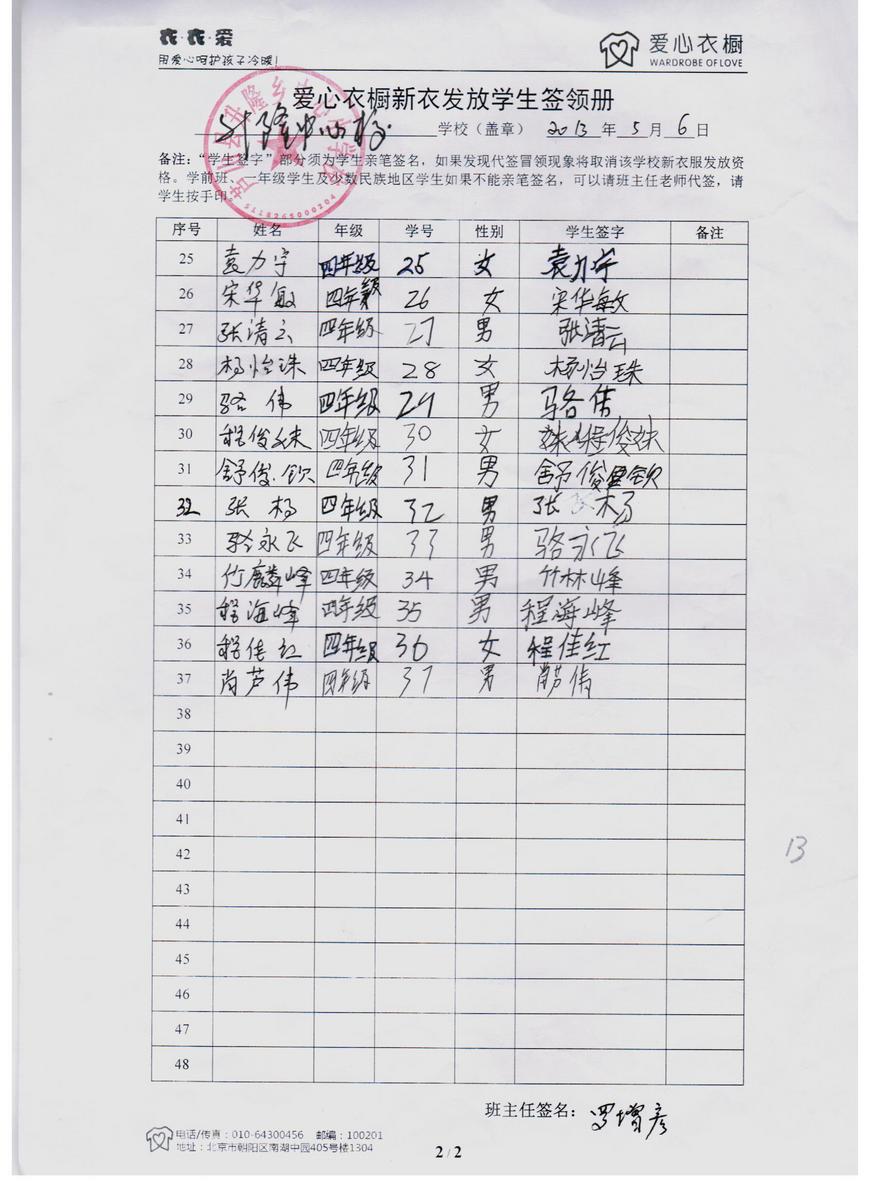 衣·衣·爱
用爱心呵护孩子冷暖!
爱心衣橱
WARDROBE OF LOVE
爱心衣橱新衣发放学生签领册
升隆中心校 学校（盖章） 2013 年 5 月 6 日
备注："学生签字"部分须为学生亲笔签名，如果发现代签冒领现象将取消该学校新衣服发放资
格。学前班、一年级学生及少数民族地区学生如果不能亲笔签名，可以请班主任老师代签，请
学生按手印。
5118265000204
序号 姓名 年级 学号 性别 学生签字 备注
25 袁力宁 四年级 25 女 袁力宁
26 宋华敏 四年级 26 女 宋华敏
27 张清云 四年级 27 男 张清云
28 杨怡珠 四年级 28 女 杨怡珠
29 骆伟 四年级 29 男 骆伟
30 程俊妹 四年级 30 女 程俊妹
31 舒俊钦 四年级 31 男 舒俊钦
32 张杨 四年级 32 男 张杨
33 骆永飞 四年级 33 男 骆永飞
34 竹麟峰 四年级 34 男 竹林峰
35 程海峰 四年级 35 男 程海峰
36 程佳红 四年级 36 女 程佳红
37 肖芦伟 四年级 37 男 肖芦伟
38
39
40
41
42
13
43
44
45
46
47
48
班主任签名：罗增彦
电话/传真：010-64300456 邮编：100201
地址：北京市朝阳区南湖中园405号楼1304
2 / 2